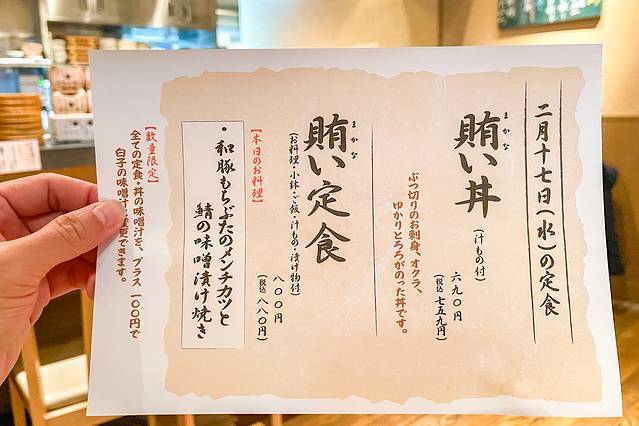 二月十七日(水)の定食
まかな
賄い丼
(汁もの付)
六九〇円
(税込 七五九円)
ぶつ切りのお刺身、オクラ、
ゆかりとろろがのった丼です。
まかな
賄い定食
(お料理・小鉢・ご飯・汁もの・漬け物付)
八〇〇円
(税込 八八〇円)
【本日のお料理】
・和豚もちぶたのメンチカツと
鯖の味噌漬け焼き
【数量限定】
全ての定食・丼の味噌汁を、プラス一〇〇円で
白子の味噌汁 変更できます。